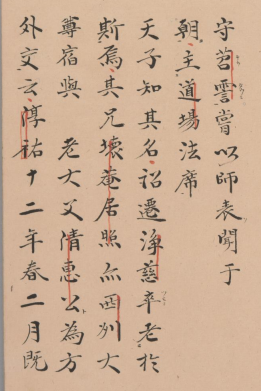 守苕霅嘗以師表聞于
朝主道場法席
天子知其名詔遷淨慈卒老於
斯焉其兄壞菴居照亦四列大
尊宿與　老大父清惠公為方
外交云淳祐十二年春二月既